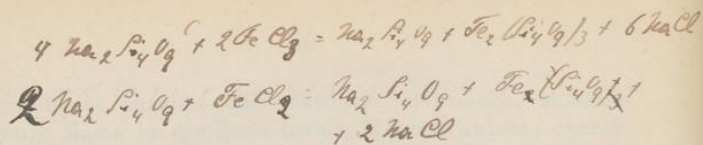 4 Na2Si4O9 + 2FeCl3 = Na2Si4O9 + Fe2(Si4O9)3 + 6NaCl
2 Na2Si4O9 + FeCl2 = Na2Si4O9 + Fe2(Si4O9)3 +
+ 2NaCl